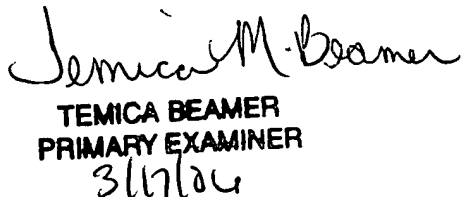 Temica M. Beamer
TEMICA BEAMER
PRIMARY EXAMINER
3/17/06